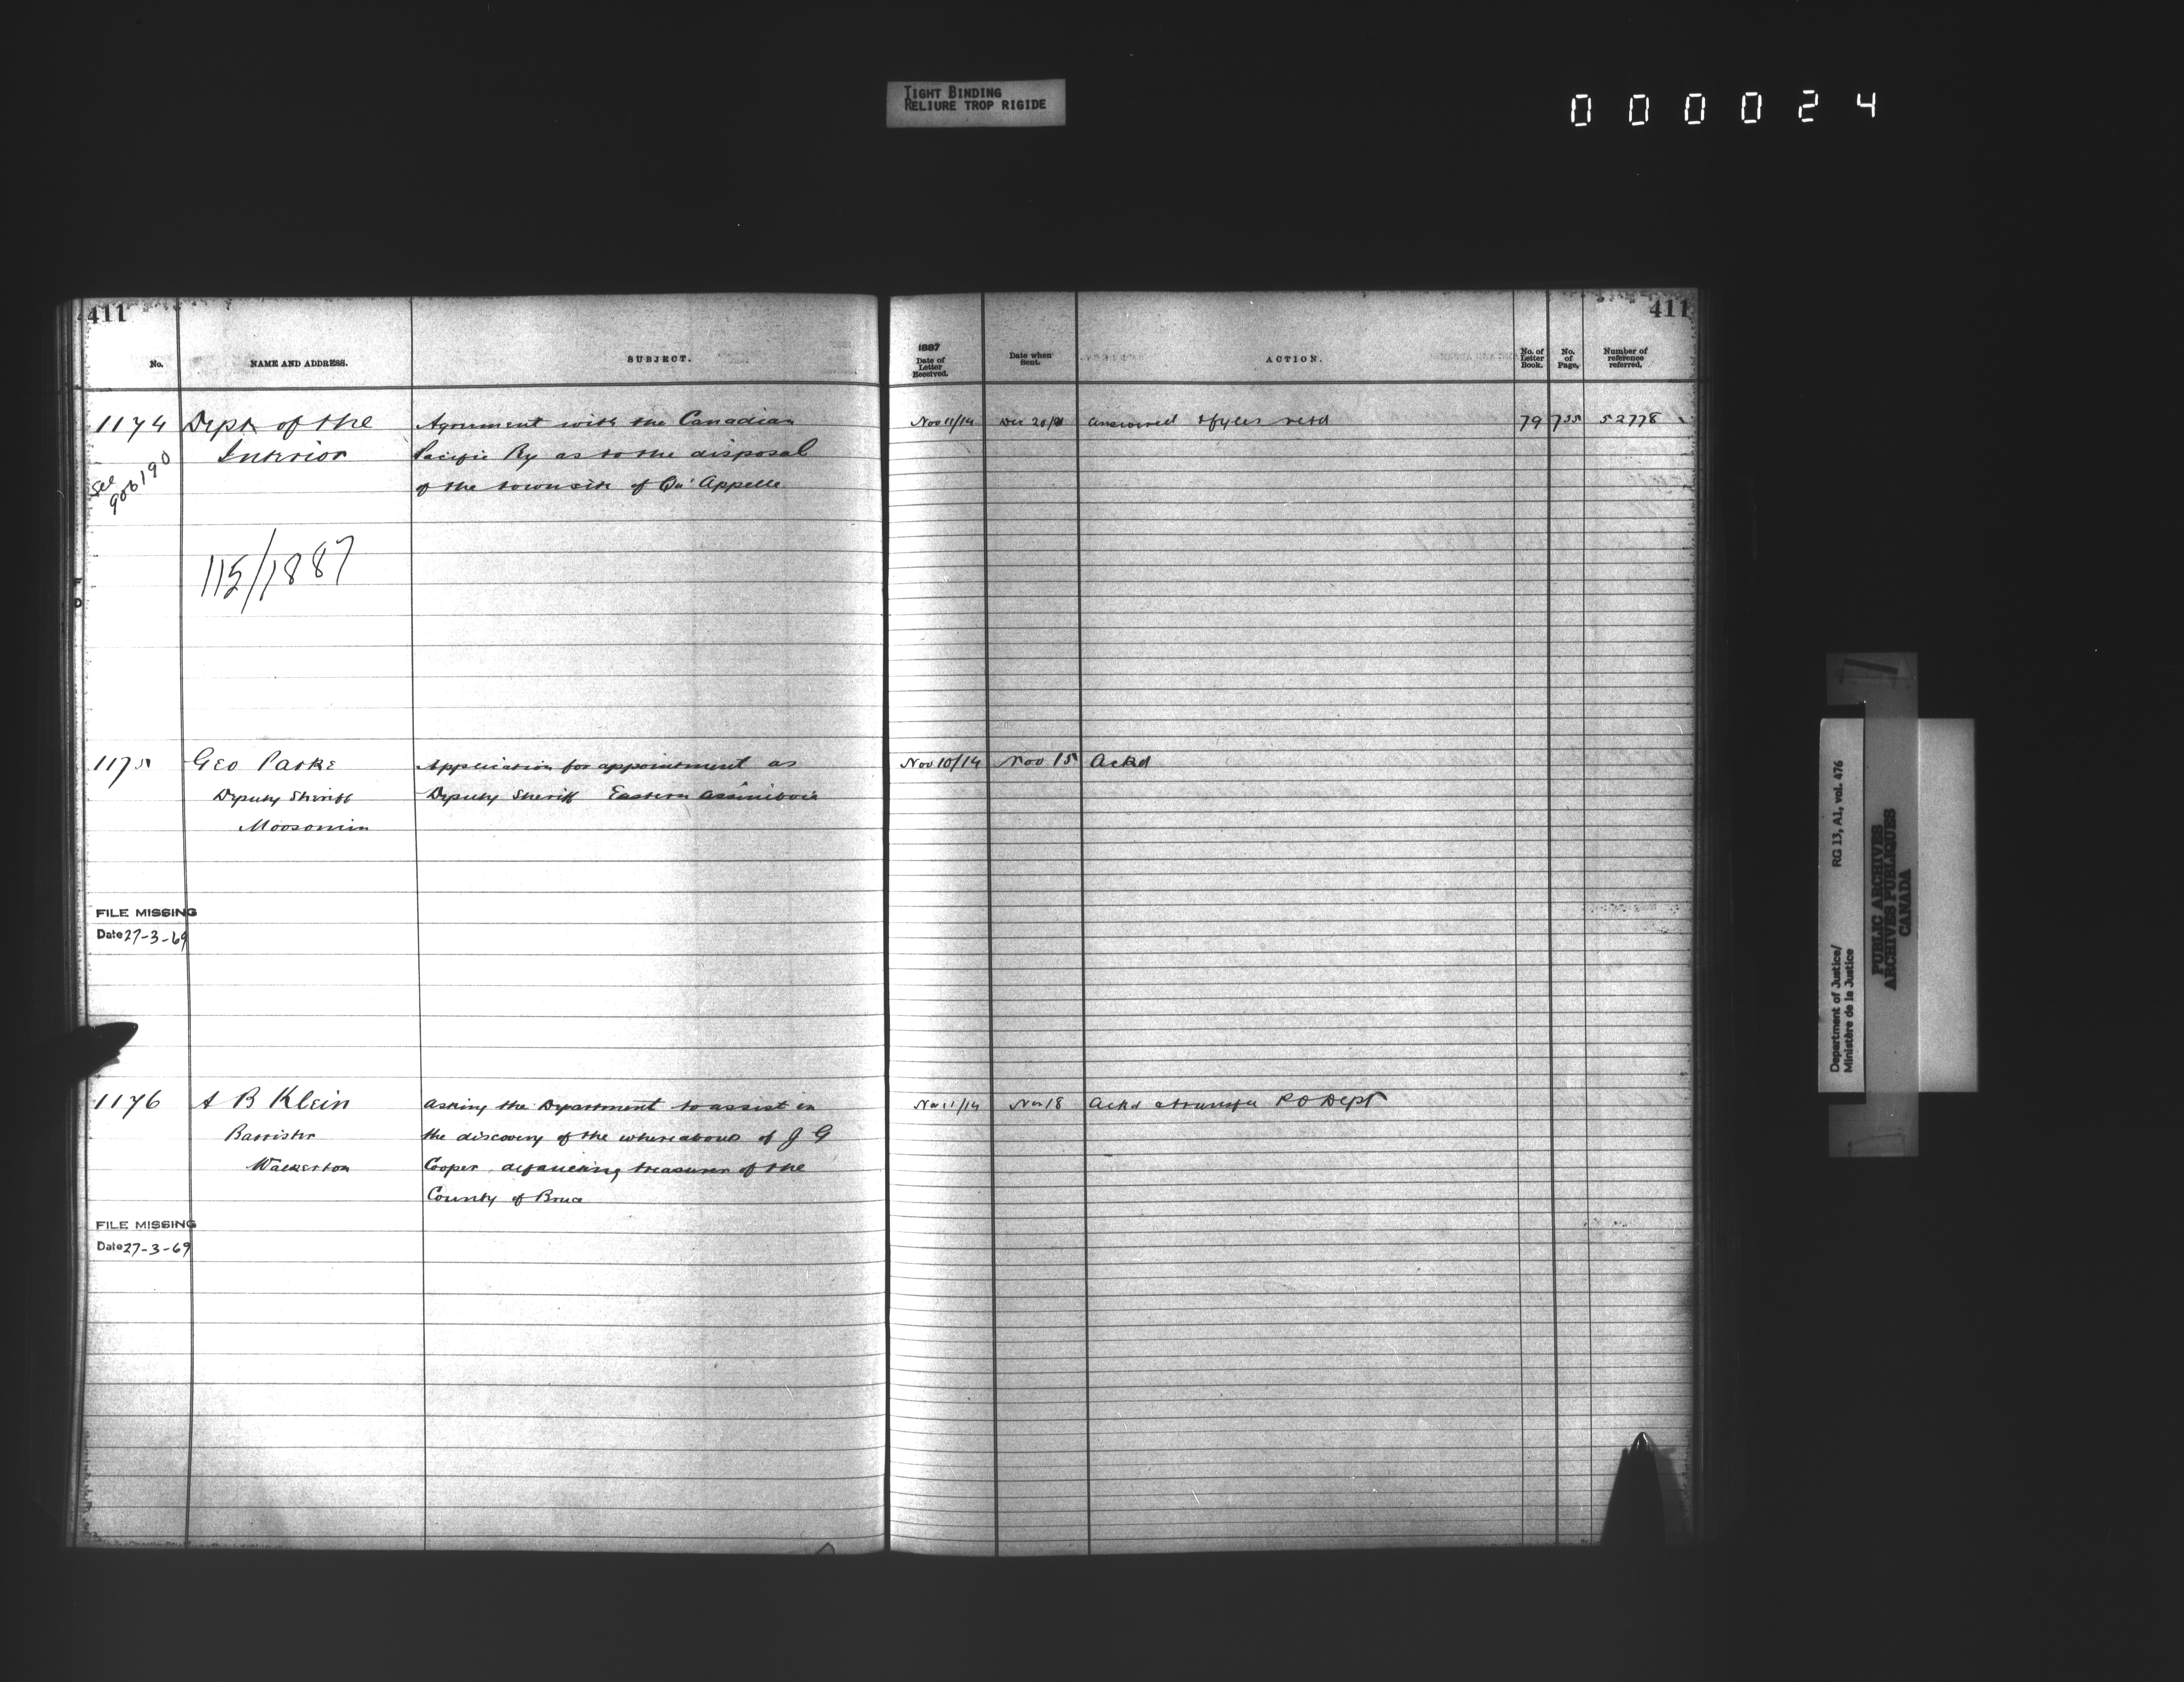 TIGHT BINDING
RELIURE TROP RIGIDE
000024
411
No.
NAME AND ADDRESS.
SUBJECT.
1174 Dept of the Agreement with the Canadian
Interior Pacific Ry as to the disposal
of the townsite of Qu'Appelle
See 906190
115/1887
1175 Geo Parke Application for appointment as
Deputy Sheriff Deputy Sheriff Eastern Assiniboia
Moosomin
FILE MISSING
Date 27-3-69
1176 A B Klein asking the Department to assist in
Barrister the discovery of the whereabouts of J G
Walkerton Cooper defaulting treasurer of the
County of Bruce
FILE MISSING
Date 27-3-69
411
1887
Date of Letter Received.
Date when Sent.
ACTION.
No. of Letter Book.
No. of Page.
Number of reference referred.
Nov 11/14 Dec 20/ answered retd 79 735 52778
Nov 10/14 Nov 15 Ackd
Nov 11/14 Nov 18 Ackd P O Dept
Department of Justice/ RG 13, A1, vol. 476
Ministère de la Justice
PUBLIC ARCHIVES
ARCHIVES PUBLIQUES
CANADA